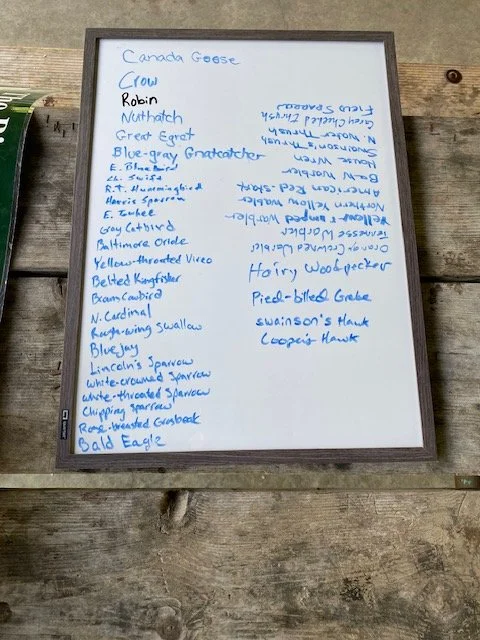 Canada Goose
Crow
Robin
Nuthatch
Great Egret
Blue-gray Gnatcatcher
E. Bluebird
Ch. Swift
R.T. Hummingbird
Harris Sparrow
E. Towhee
Gray Catbird
Baltimore Oriole
Yellow-throated Vireo
Belted Kingfisher
Brown Cowbird
N. Cardinal
Rough-wing Swallow
Blue Jay
Lincoln's Sparrow
White-crowned Sparrow
White-throated Sparrow
Chipping Sparrow
Rose-breasted Grosbeak
Bald Eagle
Orange Crowned Warbler
Tennesse Warbler
Yellow-rumped Warbler
Northern Yellow Wabler
American Red-start
B&W Warbler
House Wren
Swainson's Thrush
N. Water Thrush
Grey Cheeked Thrush
Field Sparrow
Hairy Woodpecker
Pied-billed Grebe
Swainson's Hawk
Cooper's Hawk